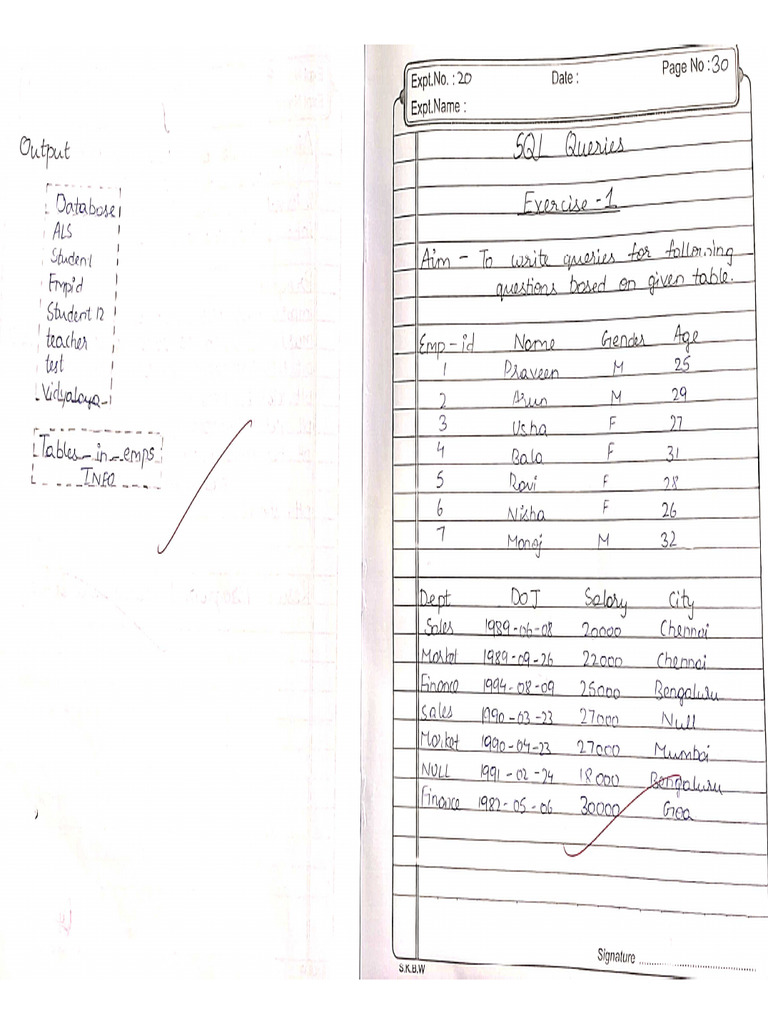 Output
Database
ALS
Student
Empid
Student 12
teacher
test
Vidyalaya
Tables_in_emps
INFO
Expt.No. : 20 Date : Page No : 30
Expt.Name :
SQL Queries
Exercise -1
Aim - To write queries for following
questions based on given table.
Emp-id Name Gender Age
1 Praveen M 25
2 Arun M 29
3 Usha F 27
4 Bala F 31
5 Ravi F 28
6 Nisha F 26
7 Manoj M 32
Dept DOJ Salary City
Sales 1989-06-08 20000 Chennai
Market 1989-09-26 22000 Chennai
Finance 1994-08-09 25000 Bengaluru
Sales 1990-03-23 27000 Null
Market 1990-04-23 27000 Mumbai
NULL 1991-02-24 18000 Bengaluru
Finance 1982-05-06 30000 Goa
Signature
S.K.B.W